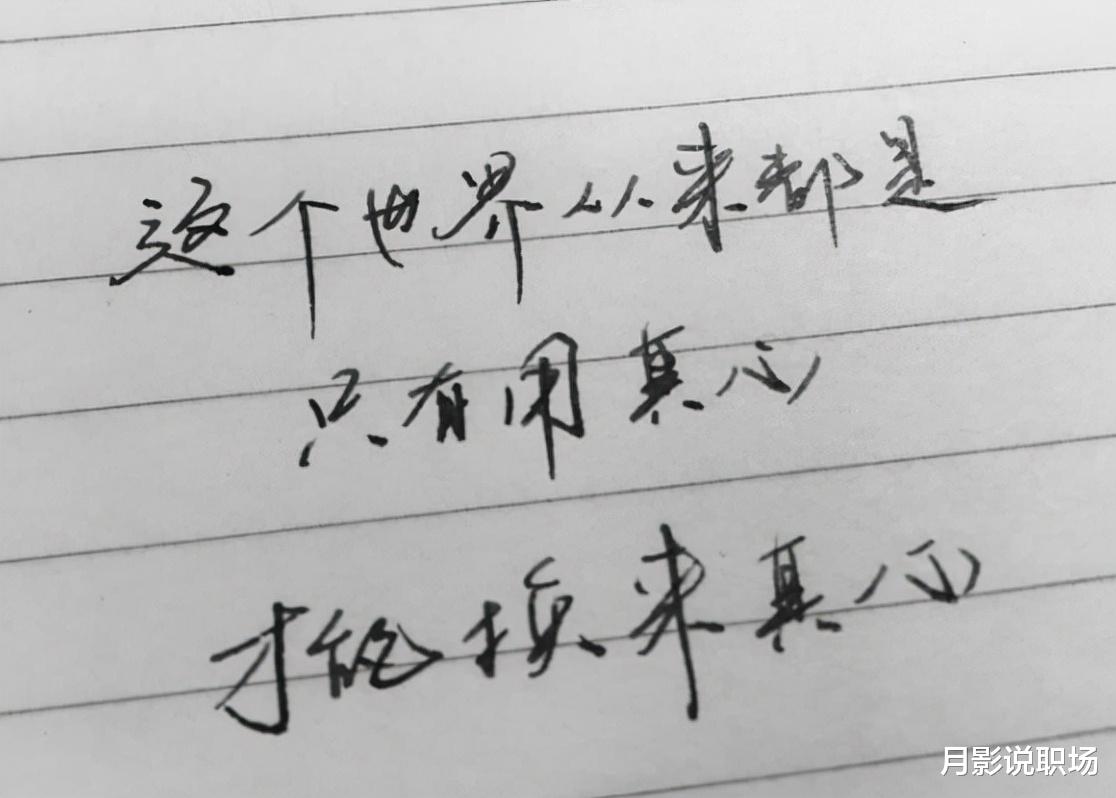 这个世界从来都是
只有用真心
才能换来真心
月影说职场